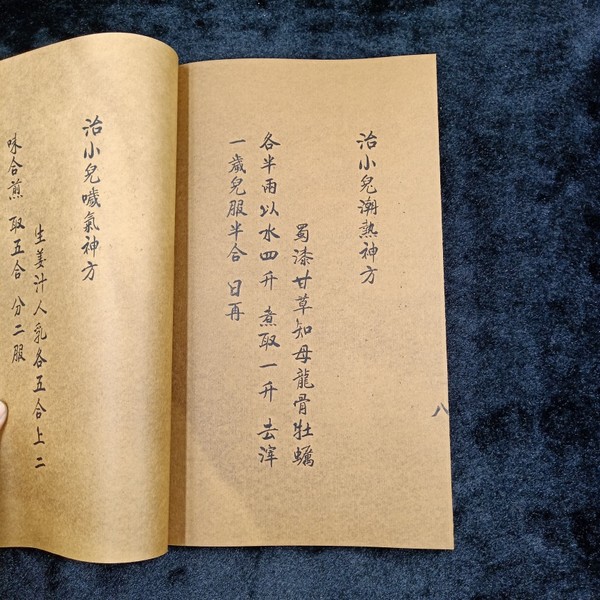 治小兒潮熱神方
蜀漆甘草知母龍骨牡蠣
各半兩以水四升 煮取一升 去滓
一歲兒服半合 日再
八
治小兒噦氣神方
生姜汁人乳各五合上二
味合煎 取五合 分二服